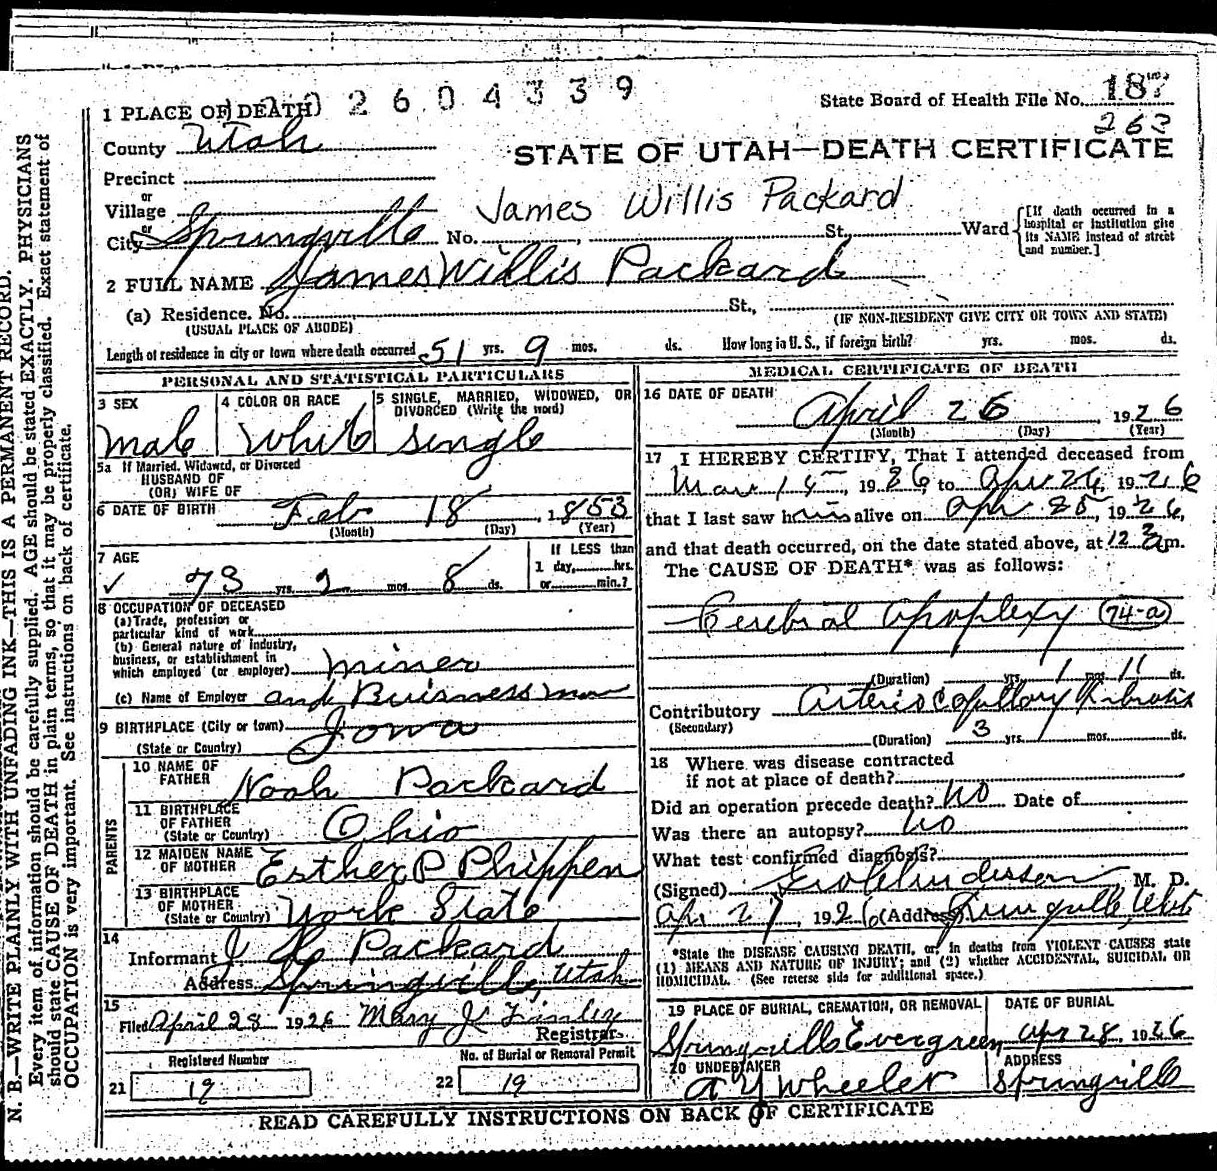 2 6 0 4 3 3 9
1 PLACE OF DEATH
State Board of Health File No. 187
263
County Utah
STATE OF UTAH—DEATH CERTIFICATE
Precinct
or
Village
James Willis Packard
or
City Springville No. St., Ward
[If death occurred in a hospital or institution give its NAME instead of street and number.]
2 FULL NAME James Willis Packard
(a) Residence. No. St.,
(USUAL PLACE OF ABODE) (IF NON-RESIDENT GIVE CITY OR TOWN AND STATE)
Length of residence in city or town where death occurred 51 yrs. 9 mos. ds. How long in U. S., if foreign birth? yrs. mos. ds.
PERSONAL AND STATISTICAL PARTICULARS
3 SEX
Male
4 COLOR OR RACE
White
5 SINGLE, MARRIED, WIDOWED, OR
DIVORCED (Write the word)
Single
5a If Married, Widowed, or Divorced
HUSBAND OF
(OR) WIFE OF
6 DATE OF BIRTH Feb 18, 1853
(Month) (Day) (Year)
7 AGE
✓ 73 yrs. 2 mos. 8 ds.
If LESS than
1 day, hrs.
or min.?
8 OCCUPATION OF DECEASED
(a) Trade, profession or
particular kind of work
(b) General nature of industry,
business, or establishment in
which employed (or employer) Miner
(c) Name of Employer and Buisness man
9 BIRTHPLACE (City or town) Iowa
(State or Country)
PARENTS
10 NAME OF
FATHER Noah Packard
11 BIRTHPLACE
OF FATHER
(State or Country) Ohio
12 MAIDEN NAME
OF MOTHER Esther P Phippen
13 BIRTHPLACE
OF MOTHER
(State or Country) York State
14
Informant Packard
Address Springville, Utah
15
Filed April 28 1926 Mary J.
Registrar
Registered Number
21 19
No. of Burial or Removal Permit
22 19
MEDICAL CERTIFICATE OF DEATH
16 DATE OF DEATH
April 26, 1926
(Month) (Day) (Year)
17 I HEREBY CERTIFY, That I attended deceased from
Mar 15, 1926, to Apr 26, 1926
that I last saw him alive on Apr 25, 1926,
and that death occurred, on the date stated above, at 12 am.
The CAUSE OF DEATH* was as follows:
Cerebral Apoplexy 74-a
(Duration) yrs. 1 mos 11 ds.
Contributory Arterio Capillary Fibrosis
(Secondary)
(Duration) 3 yrs. mos. ds.
18 Where was disease contracted
if not at place of death?
Did an operation precede death? No Date of
Was there an autopsy? No
What test confirmed diagnosis?
(Signed) Anderson M. D.
Apr 27, 1926 (Address) Springville, Utah
*State the DISEASE CAUSING DEATH, or, in deaths from VIOLENT CAUSES state
(1) MEANS AND NATURE OF INJURY; and (2) whether ACCIDENTAL, SUICIDAL OR
HOMICIDAL. (See reverse side for additional space.)
19 PLACE OF BURIAL, CREMATION, OR REMOVAL
Springville Evergreen
DATE OF BURIAL
Apr 28, 1926
20 UNDERTAKER
A Y Wheeler
ADDRESS
Springville
READ CAREFULLY INSTRUCTIONS ON BACK OF CERTIFICATE
N. B.—WRITE PLAINLY WITH UNFADING INK—THIS IS A PERMANENT RECORD.
Every item of information should be carefully supplied. AGE should be stated EXACTLY. PHYSICIANS
should state CAUSE OF DEATH in plain terms, so that it may be properly classified. Exact statement of
OCCUPATION is very important. See instructions on back of certificate.